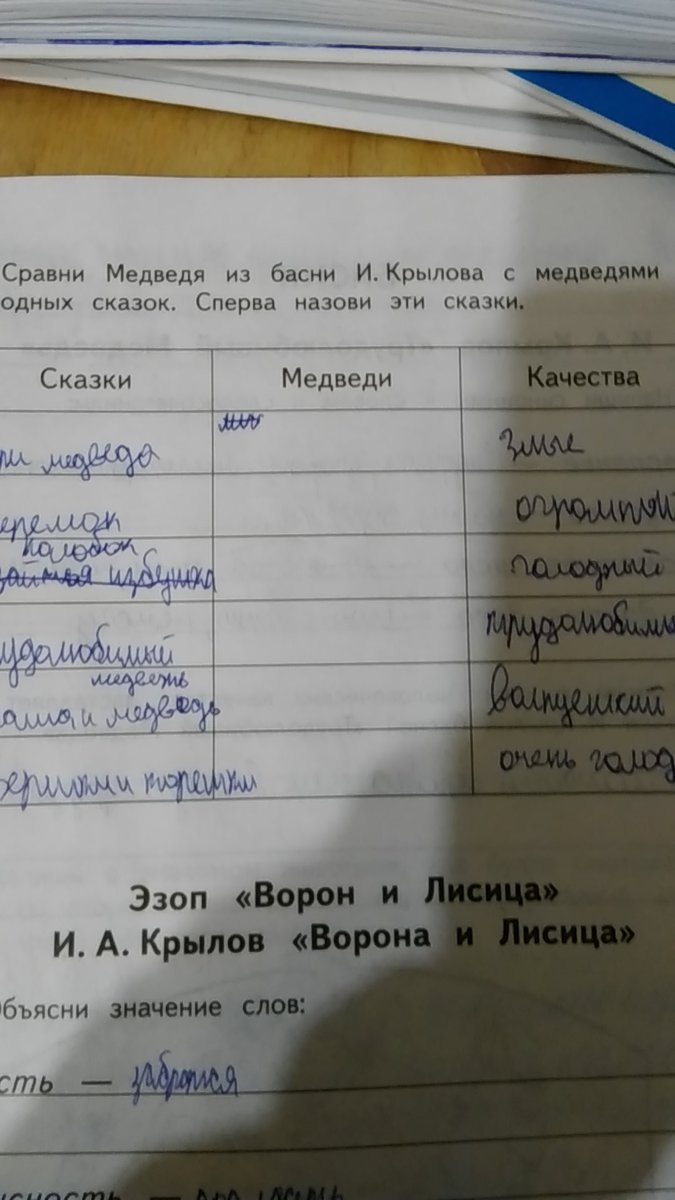 Сравни Медведя из басни И. Крылова с медведями
одных сказок. Сперва назови эти сказки.
Сказки Медведи Качества
ри медведа злые
еремок огромный
колобок
избушка голодный
удолюбимый трудолюбимы
медветь
аша и медведь
ершки и корешки очень голод
Эзоп «Ворон и Лисица»
И. А. Крылов «Ворона и Лисица»
бъясни значение слов:
сть —